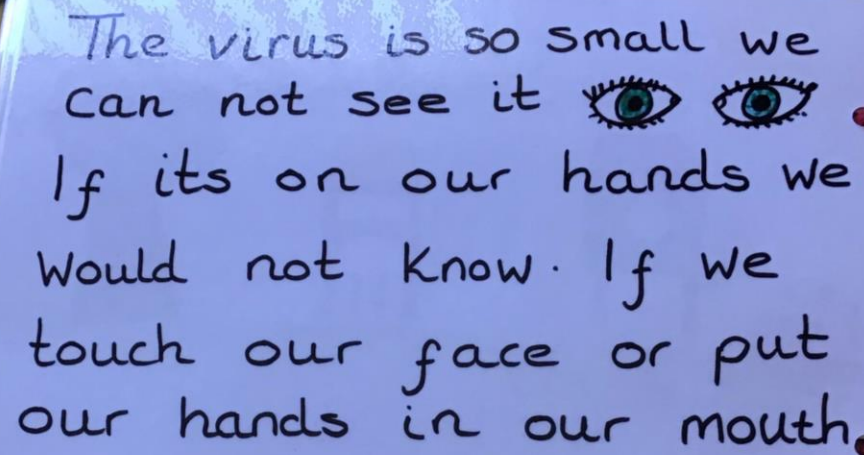 The virus is so small we
can not see it
If its on our hands we
would not know. If we
touch our face or put
our hands in our mouth